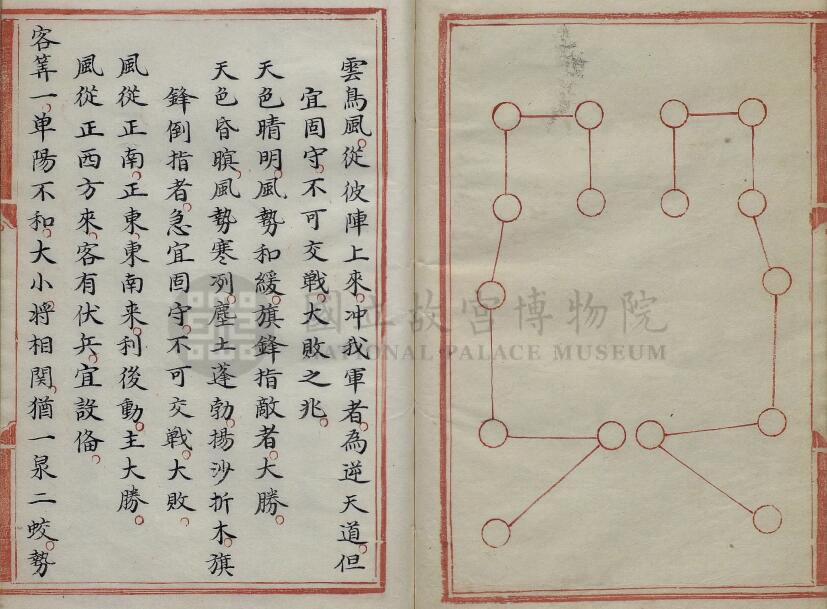 雲鳥風。從彼陣上來。冲我軍者。為逆天道。但
宜固守。不可交戰。大敗之兆。
天色晴明。風勢和緩。旗鋒指敵者。大勝。
天色昏暝。風勢寒冽。塵土蓬勃。揚沙折木。旗
鋒倒指者。急宜固守。不可交戰。大敗。
風從正南。正東。東南來。利後動。主大勝。
風從正西方來。客有伏兵。宜設偹。
客筭一。单陽不和。大小將相関。猶一泉二蛟勢
國立故宮博物院
NATIONAL PALACE MUSEUM